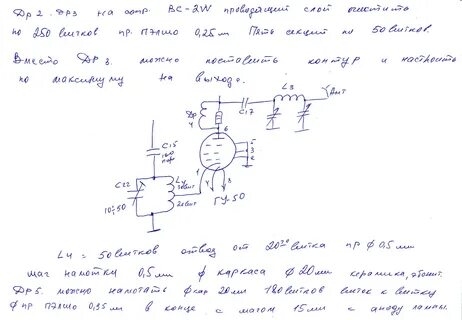 Др 2. Др3 на сопр. ВС-2W проводящий слой очистить
по 250 витков пр. ПЭЛШО 0,25м Пять секций по 50 витков.
Вместо ДР 3. можно поставить контур и настроить
по максимуму на выходе.
L3
Ант
Др
4
C17
6
C15
100
5
3
2
1
L4
30вит
20вит
C22
10:50
4
8
ГУ-50
L4 = 50 витков отвод от 20го витка пр ф 0,5 мм
шаг намотки 0,5м ф каркаса ф 20мм керамика, эбонит.
Др 5. можно намотать ф кар 20мм 120 витков виток к витку
ф пр ПЭЛШО 0,35м в конце с шагом 15мм к аноду лампы.